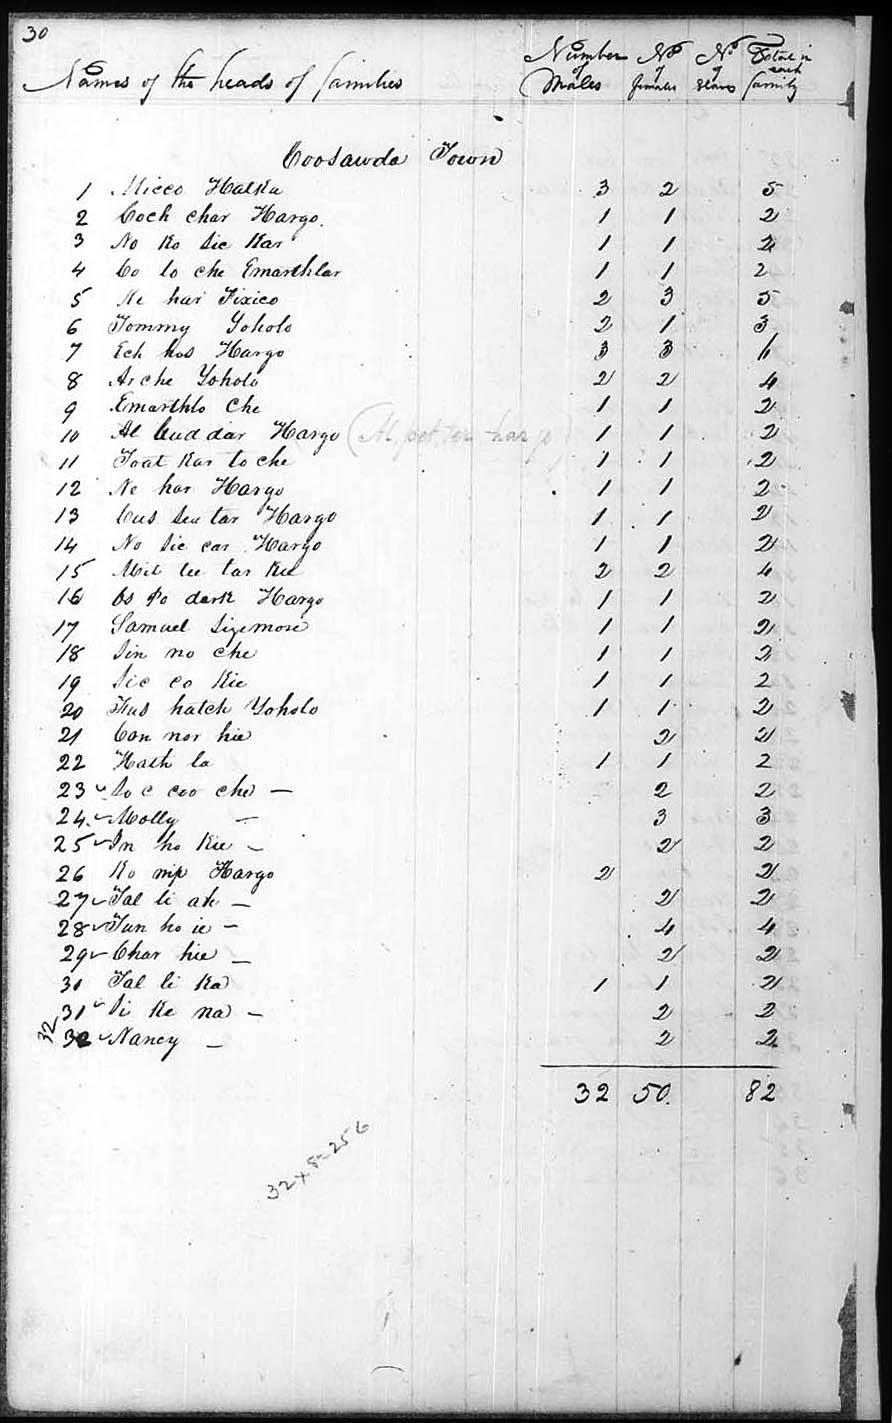 30
Names of the heads of families Number of Males No of females No of Slaves Total in each family
Coosawda Town
1 Micco Halka 3 2 5
2 Coch char Hargo. 1 1 2
3 No ko sic kar 1 1 2
4 Co lo che Emarthlar 1 1 2
5 Ne har Fixico 2 3 5
6 Tommy Yoholo 2 1 3
7 Ech hos Hargo 3 3 6
8 Ar che Yoholo 2 2 4
9 Emarthlo Che 1 1 2
10 Al Cud dar Hargo (Al pet ter harjo) 1 1 2
11 Toat Kar to che 1 1 2
12 Ne har Hargo 1 1 2
13 Cus sea tar Hargo 1 1 2
14 No sic car Hargo 1 1 2
15 lee tar Kee 2 2 4
16 Os po dark Hargo 1 1 2
17 Samuel Sizemore 1 1 2
18 Sin no che 1 1 2
19 Sic co Kee 1 1 2
20 Tus hatch Yoholo 1 1 2
21 Con nor hee 2 2
22 Hath la 1 1 2
23 So c coo che — 2 2
24 Molly — 3 3
25 In ho Kee — 2 2
26 Ko nip Hargo 2 2
27 Tal li ah — 2 2
28 Tun ho ie — 4 4
29 Char hee — 2 2
30 Tal li Ka 1 1 2
31 Si Ke na — 2 2
32 32 Nancy — 2 2
32 50. 82
32 x 8 = 256